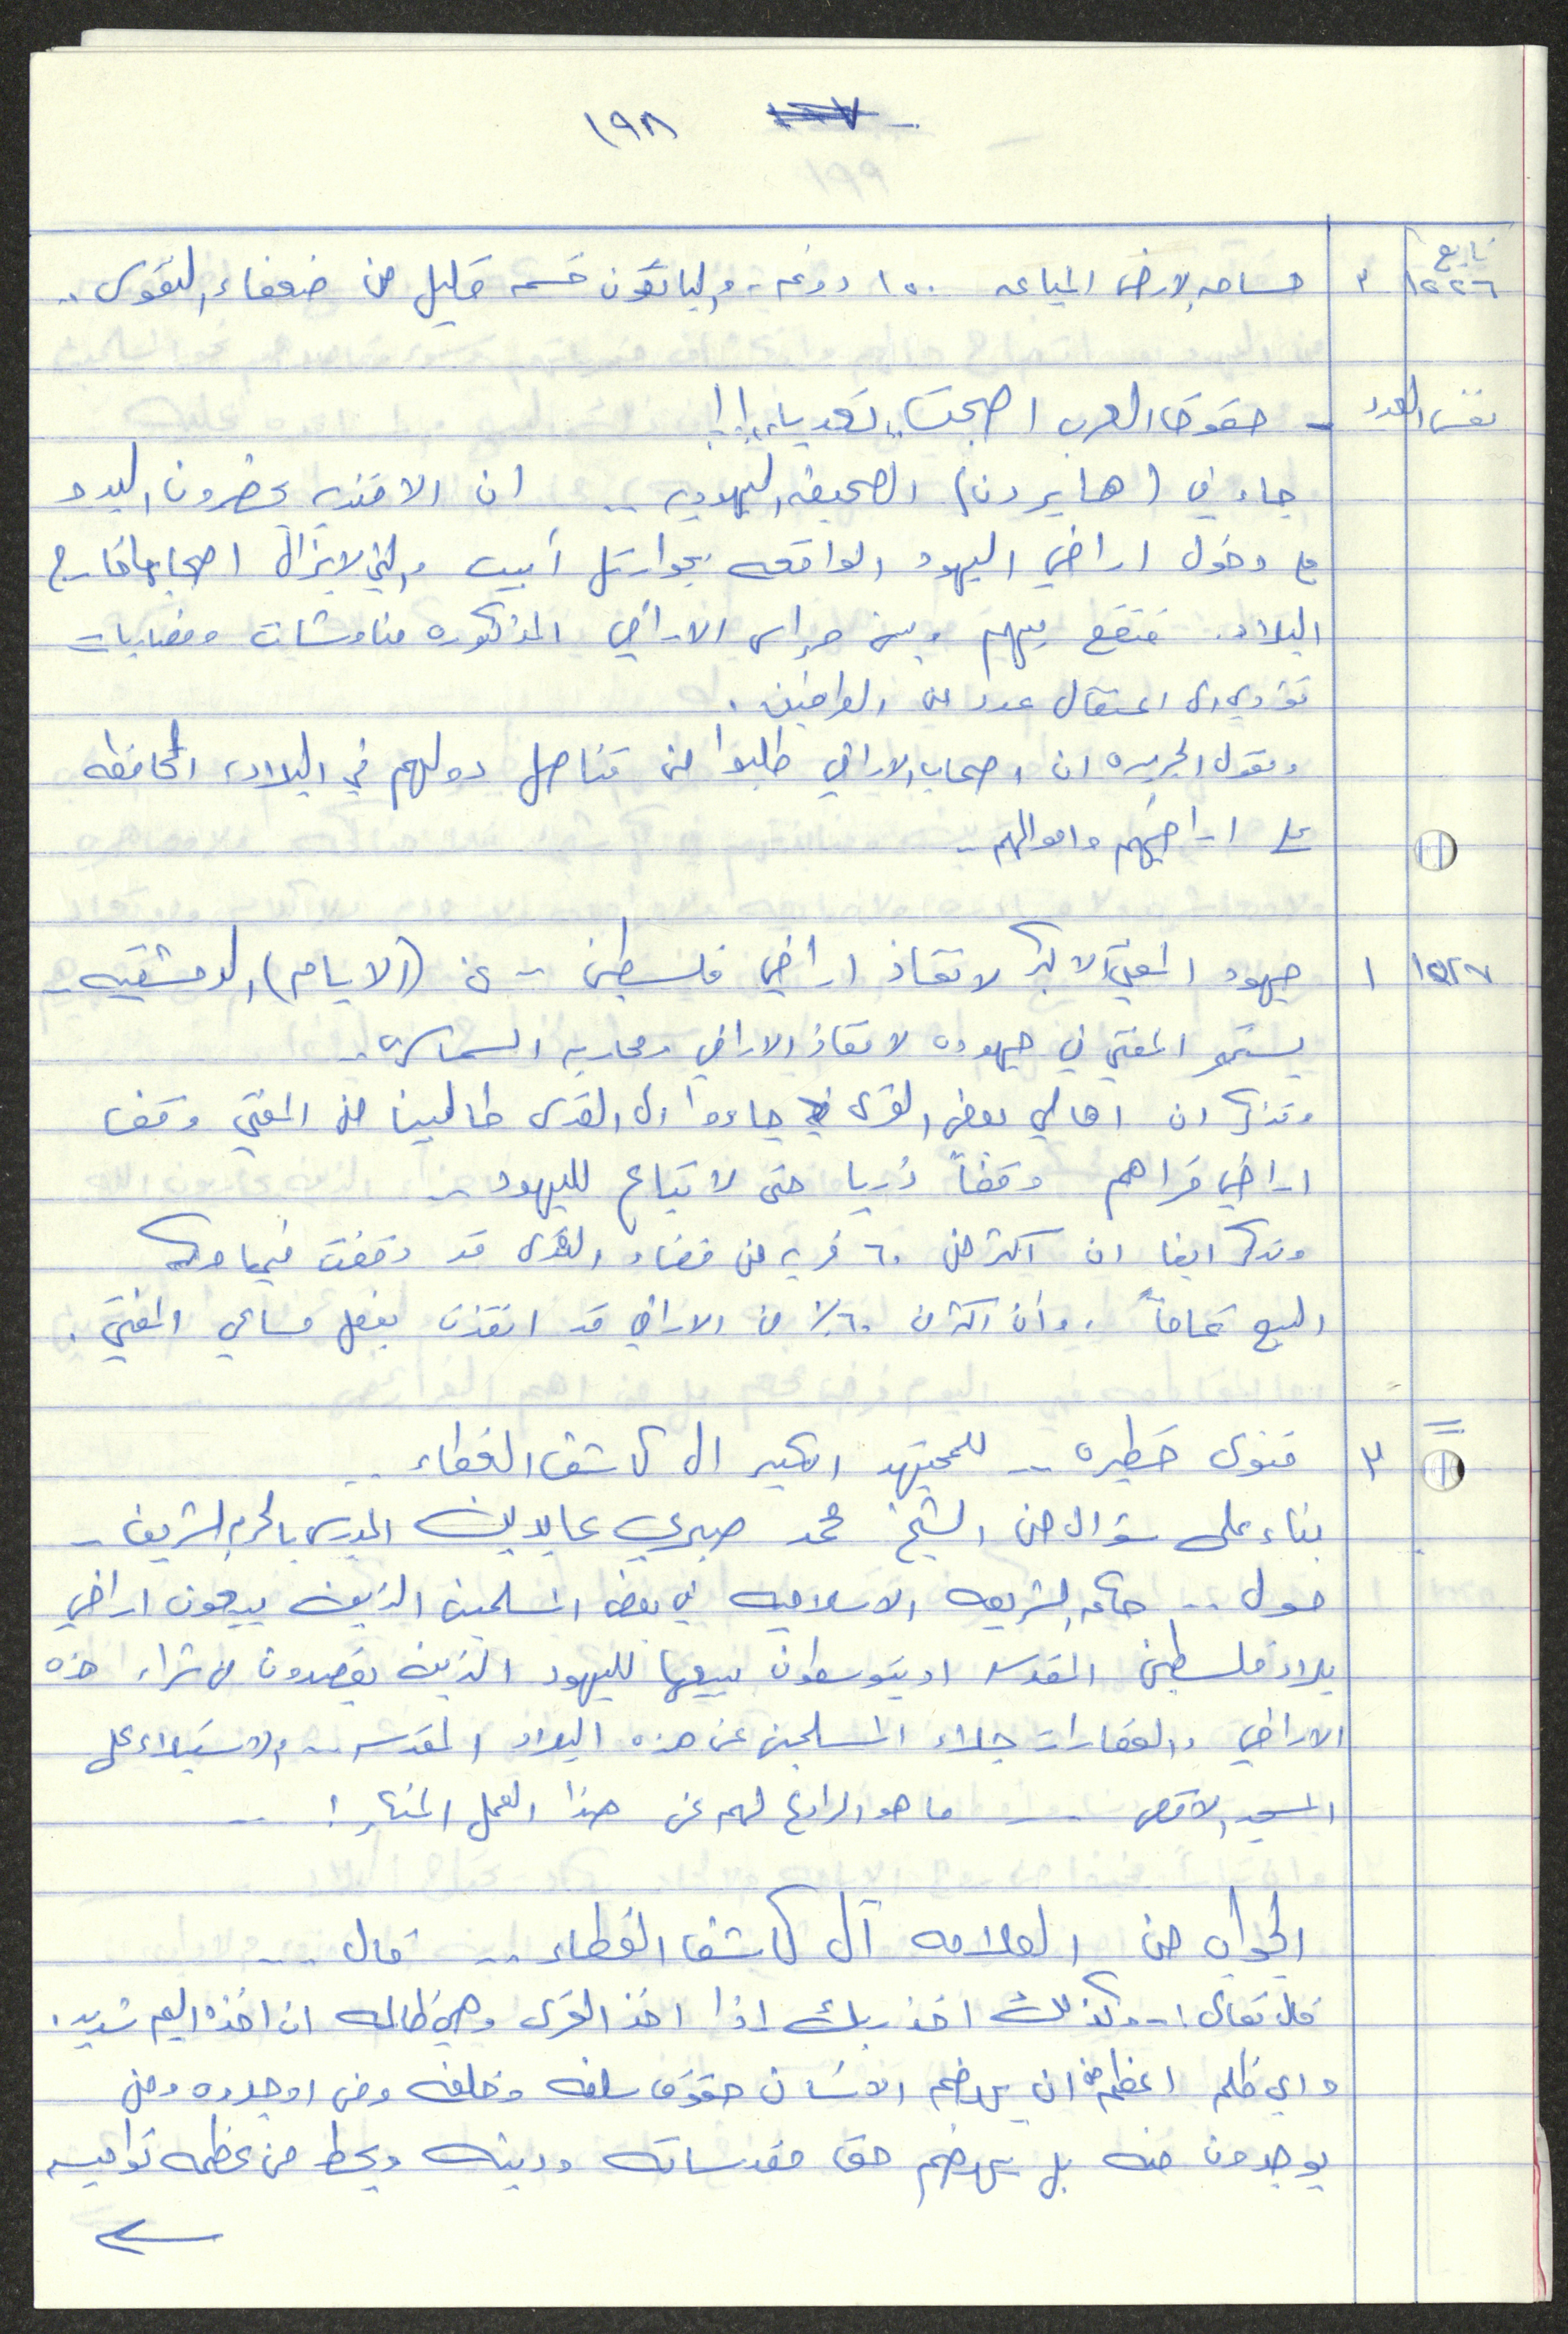 ١٩٨
تابع
١٥٢٦ ٣ مساحه الارض المباعه ١٥٠ دونم .. والبائعون قسم قليل من ضعفاء النفوس ..
نفس العدد - حقوق العرب اصبحت ,, تعديا ,, !!
جاء في (هايردن) الصحيفه اليهوديه .. ان الافنديه يحضرون البدو
مع دخول اراضي اليهود الواقعه بجوار تل أبيب والتي لا يزال اصحابها خارج
البلاد . فتقع بينهم وبين حراس الاراضي المذكوره مناوشات ومضاربات
تؤدي الى اعتقال عدد من الواقفين .
وتقول الجريده ان اصحاب الاراضي طلبوا من قناصل دولهم في البلاد، المحافظه
على اراضيهم واموالهم ..
١٥٢٧ ١ جهود المفتي الاكبر لانقاذ اراضي فلسطين - عن (الايام) الدمشقيه ..
يستمر المفتي في جهوده لانقاذ الاراضي ومحاربه السماسره ..
وتذكر ان اهالي بعض القرى جاءوا الى القدس طالبين من المفتي وقف
اراضي قراهم وقفاً ذريا حتى لا تباع لليهود ..
وتذكر ايضا ان اكثر من ٦٠ قريه من قضاء القدس قد وقفت فيها حركه
البيع تماماً ، وان اكثر من ٦٠٪ من الاراضي قد انقذت بفضل مساعي المفتي .
٣ فتوى خطيره .. للمجتهد الكبير ال كاشف الغطاء ..
بناء على سؤال من الشيخ محمد صبري عابدين المدرس بالحرم الشريف ..
حول .. حكم الشريعه الاسلاميه في بعض المسلمين الذين يبيعون اراضي
بلاد فلسطين المقدسه او يتوسطون ببيعها لليهود الذين يقصدون من شراء هذه
الاراضي والعقارات جلاء المسلمين عن هذه البلاد المقدسه .. والاستيلاء على
المسجد الاقصى .. ما هو الرادع لهم عن هذا العمل المنكر ! ..
الجواب من العلامه آل كاشف الغطاء .. قال ..
قال تعالى .. وكذلك اخذ ربك اذا اخذ القرى وهي ظالمه ان اخذه اليم شديد .
واي ظلم اعظم من ان يهضم الانسان حقوق سلفه وخلفه ومن اوجدوه ومن
يوجدون منه بل يهضم حق مقدساته ودينه ويحط من عظمه نواميسه